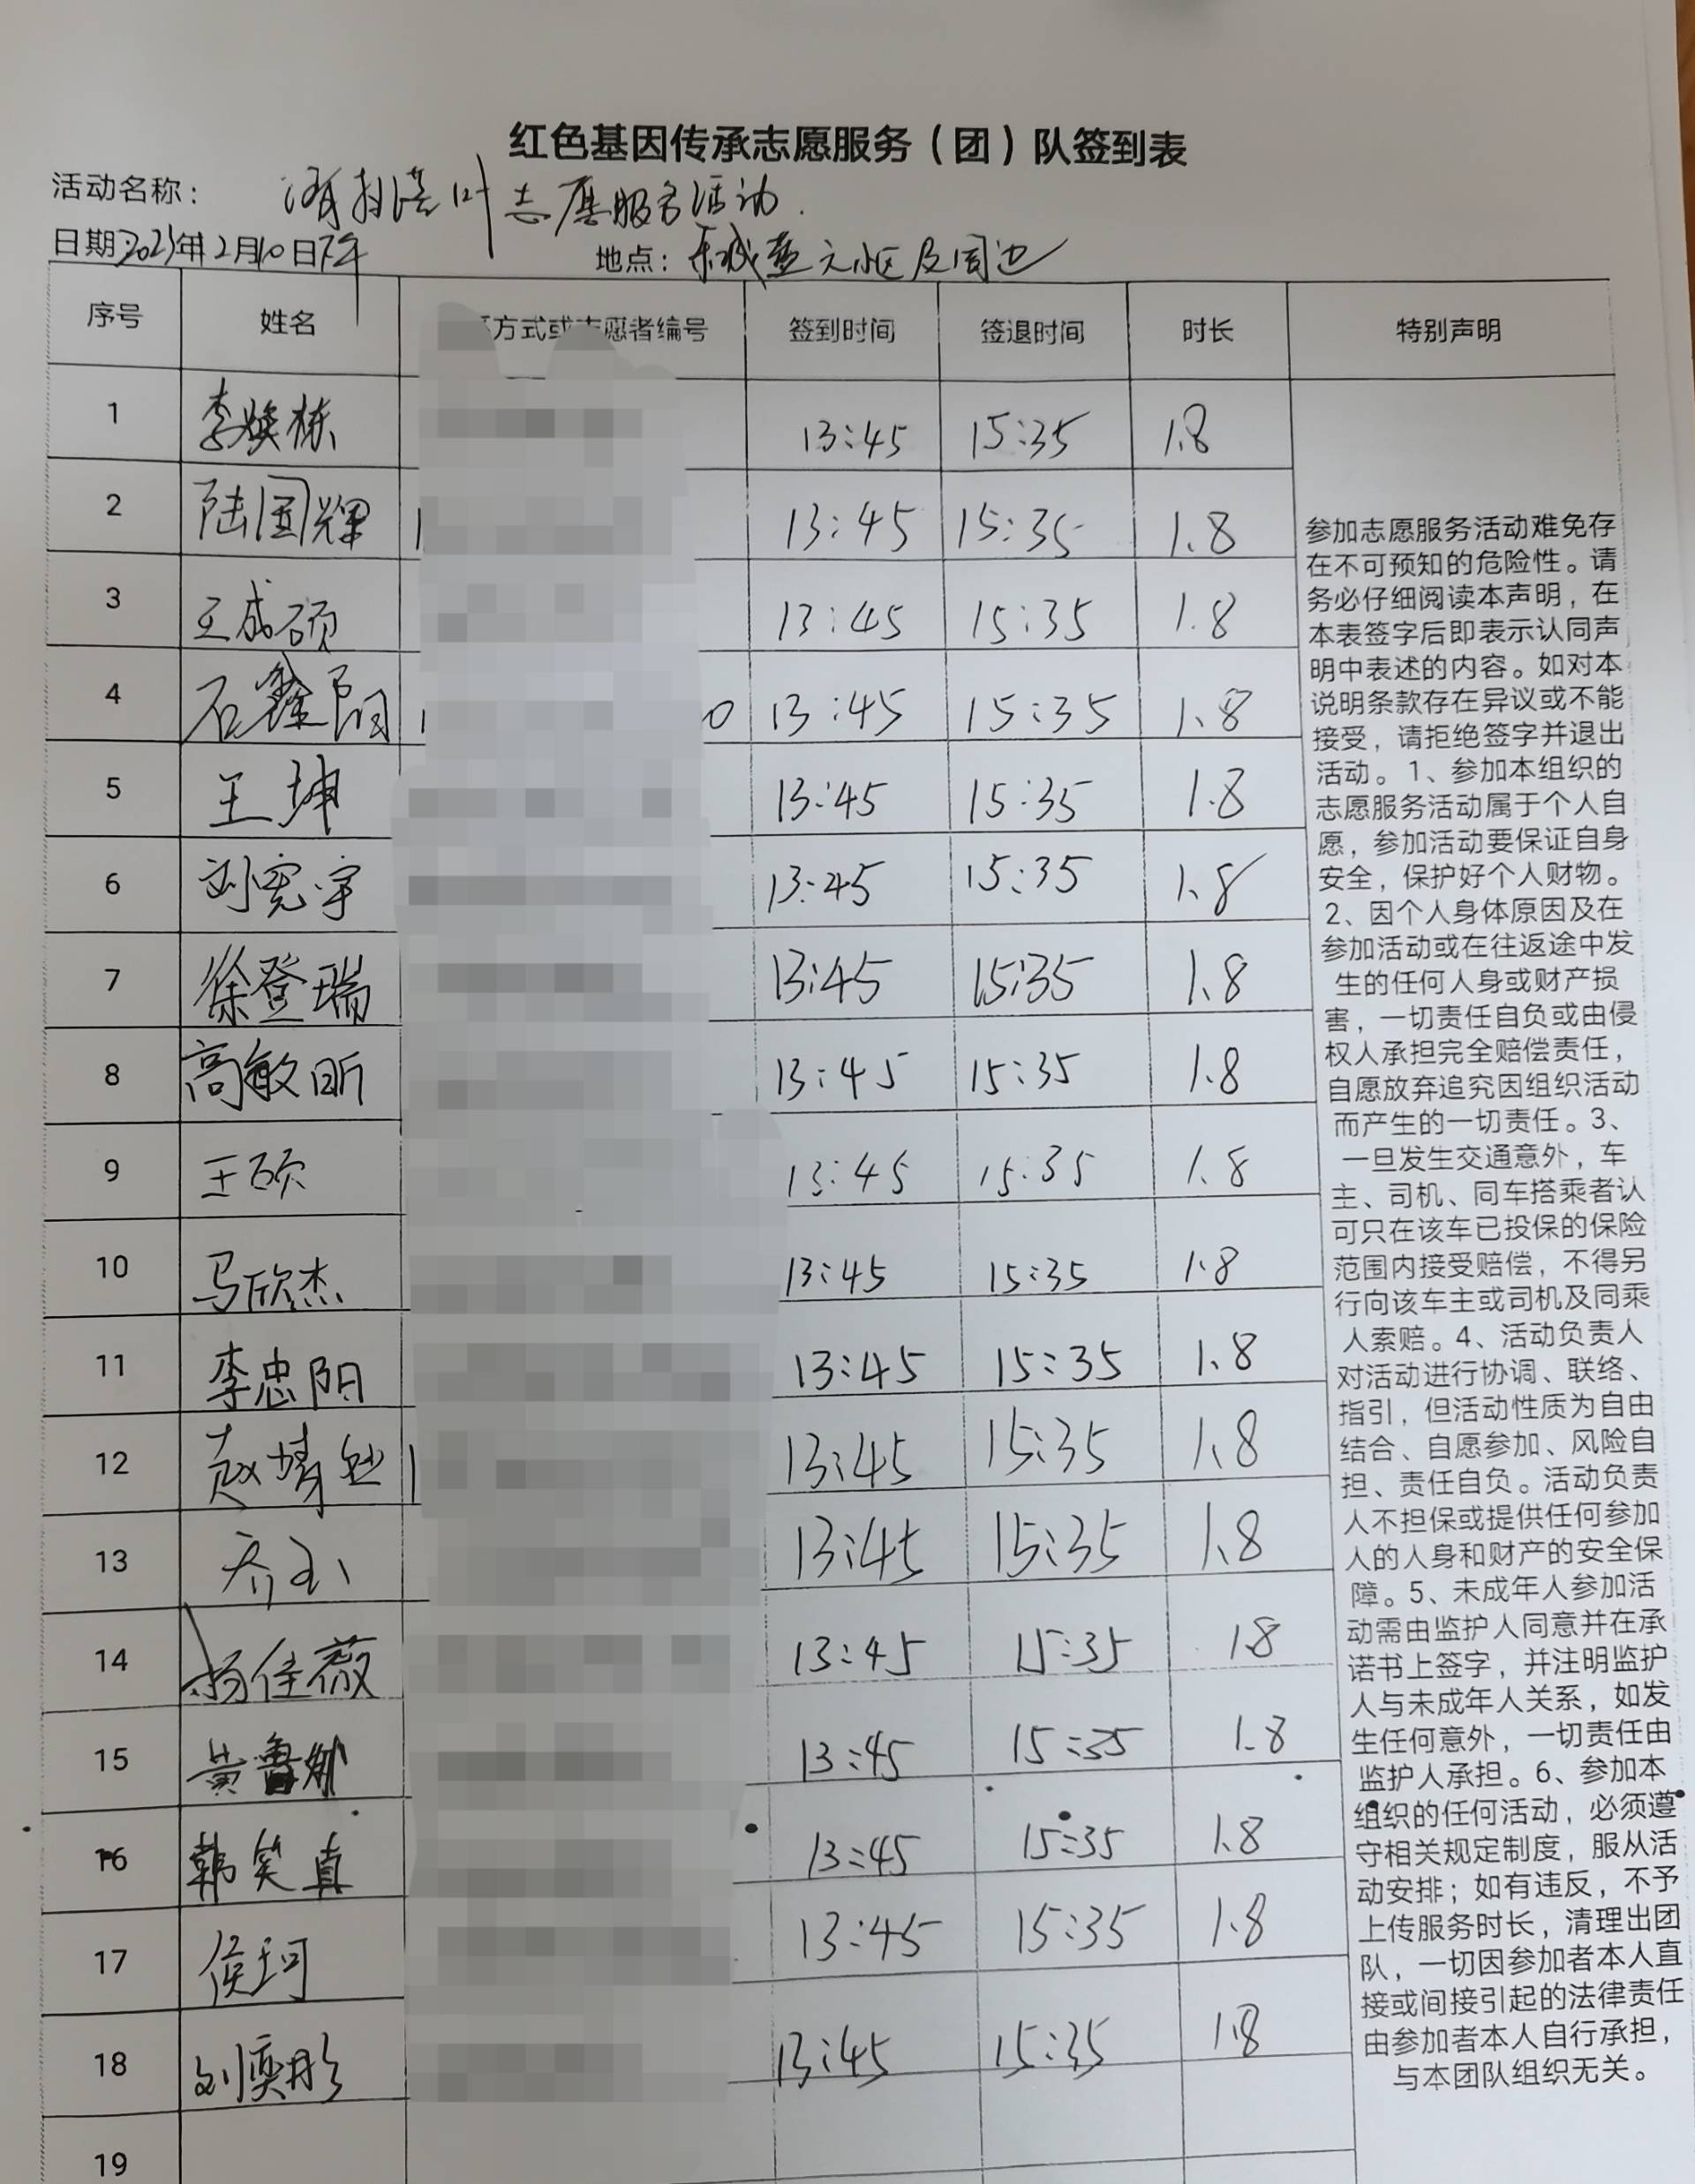 红色基因传承志愿服务（团）队签到表
活动名称： 清扫落叶志愿服务活动.
日期：2023年12月10日下午 地点：东城 小区及周边
序号 姓名 方式或志愿者编号 签到时间 签退时间 时长 特别声明
1 李焕栋 13:45 15:35 1.8
2 陆国辉 13:45 15:35 1.8
3 王成硕 13:45 15:35 1.8
4 石鑫阳 0 13:45 15:35 1.8
5 王坤 13:45 15:35 1.8
6 刘宪宇 13:45 15:35 1.8
7 徐登瑞 13:45 15:35 1.8
8 高敏昕 13:45 15:35 1.8
9 王硕 13:45 15:35 1.8
10 马欣杰 13:45 15:35 1.8
11 李忠阳 13:45 15:35 1.8
12 赵 13:45 15:35 1.8
13 乔 13:45 15:35 1.8
14 杨佳薇 13:45 15:35 1.8
15 黄 13:45 15:35 1.8
16 韩笑真 13:45 15:35 1.8
17 侯珂 13:45 15:35 1.8
18 刘奕彤 13:45 15:35 1.8
19
参加志愿服务活动难免存
在不可预知的危险性。请
务必仔细阅读本声明，在
本表签字后即表示认同声
明中表述的内容。如对本
说明条款存在异议或不能
接受，请拒绝签字并退出
活动。1、参加本组织的
志愿服务活动属于个人自
愿，参加活动要保证自身
安全，保护好个人财物。
2、因个人身体原因及在
参加活动或在往返途中发
生的任何人身或财产损
害，一切责任自负或由侵
权人承担完全赔偿责任，
自愿放弃追究因组织活动
而产生的一切责任。3、
一旦发生交通意外，车
主、司机、同车搭乘者认
可只在该车已投保的保险
范围内接受赔偿，不得另
行向该车主或司机及同乘
人索赔。4、活动负责人
对活动进行协调、联络、
指引，但活动性质为自由
结合、自愿参加、风险自
担、责任自负。活动负责
人不担保或提供任何参加
人的人身和财产的安全保
障。5、未成年人参加活
动需由监护人同意并在承
诺书上签字，并注明监护
人与未成年人关系，如发
生任何意外，一切责任由
监护人承担。6、参加本
组织的任何活动，必须遵
守相关规定制度，服从活
动安排；如有违反，不予
上传服务时长，清理出团
队，一切因参加者本人直
接或间接引起的法律责任
由参加者本人自行承担，
与本团队组织无关。